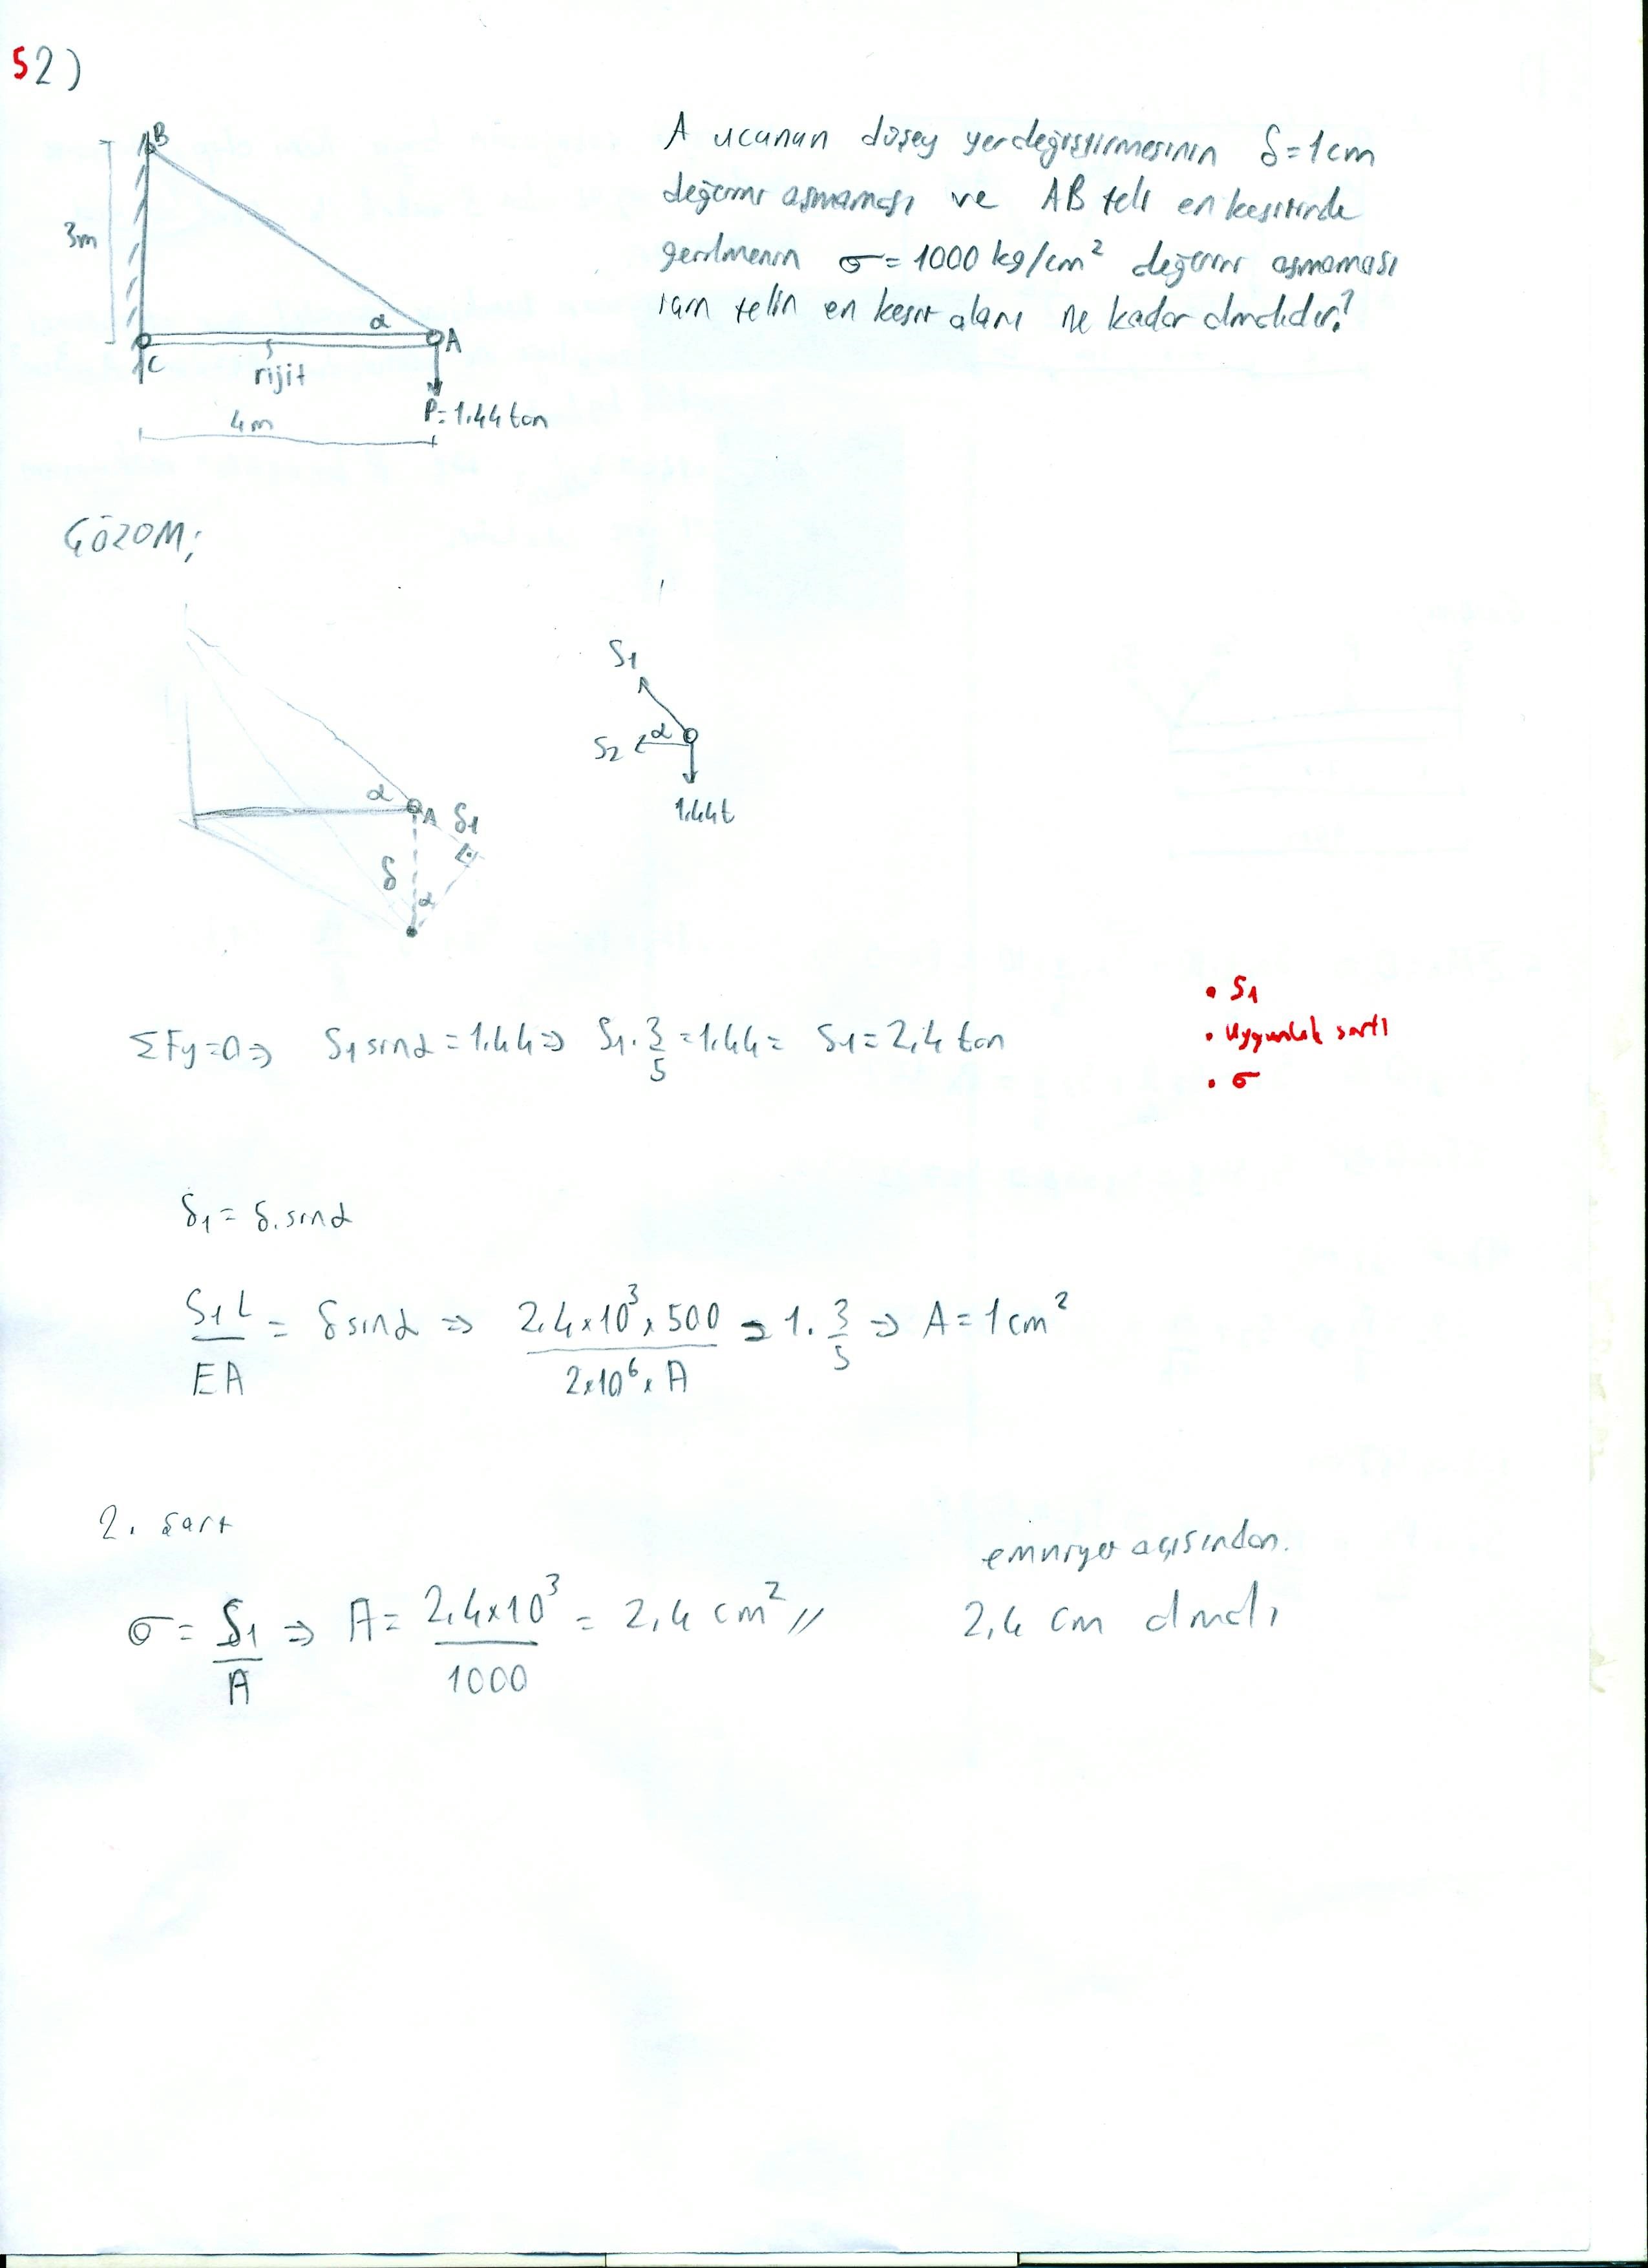 52)
B
3m
α
A
C
rijit
P=1.44 ton
4m
A ucunun düşey yerdeğiştirmesinin δ=1cm
değerini aşmaması ve AB teli en kesitinde
gerilmenin σ=1000 kg/cm² değerini aşmaması
için telin en kesit alanı ne kadar olmalıdır?
ÇÖZÜM;
α
A
δ1
δ
α
S1
S2
α
1.44t
ΣFy=0⇒ S1 sinα=1.44⇒ S1·3/5=1.44= S1=2,4 ton
• S1
• Uygunluk şartı
• σ
δ1=δ.sinα
S1L/EA = δ sinα ⇒ 2.4x10³x500/2x10⁶xA = 1·3/5 ⇒ A=1cm²
2. şart
σ=S1/A ⇒ A=2,4x10³/1000 = 2,4 cm² //
emniyet açısından.
2,4 cm olmalı